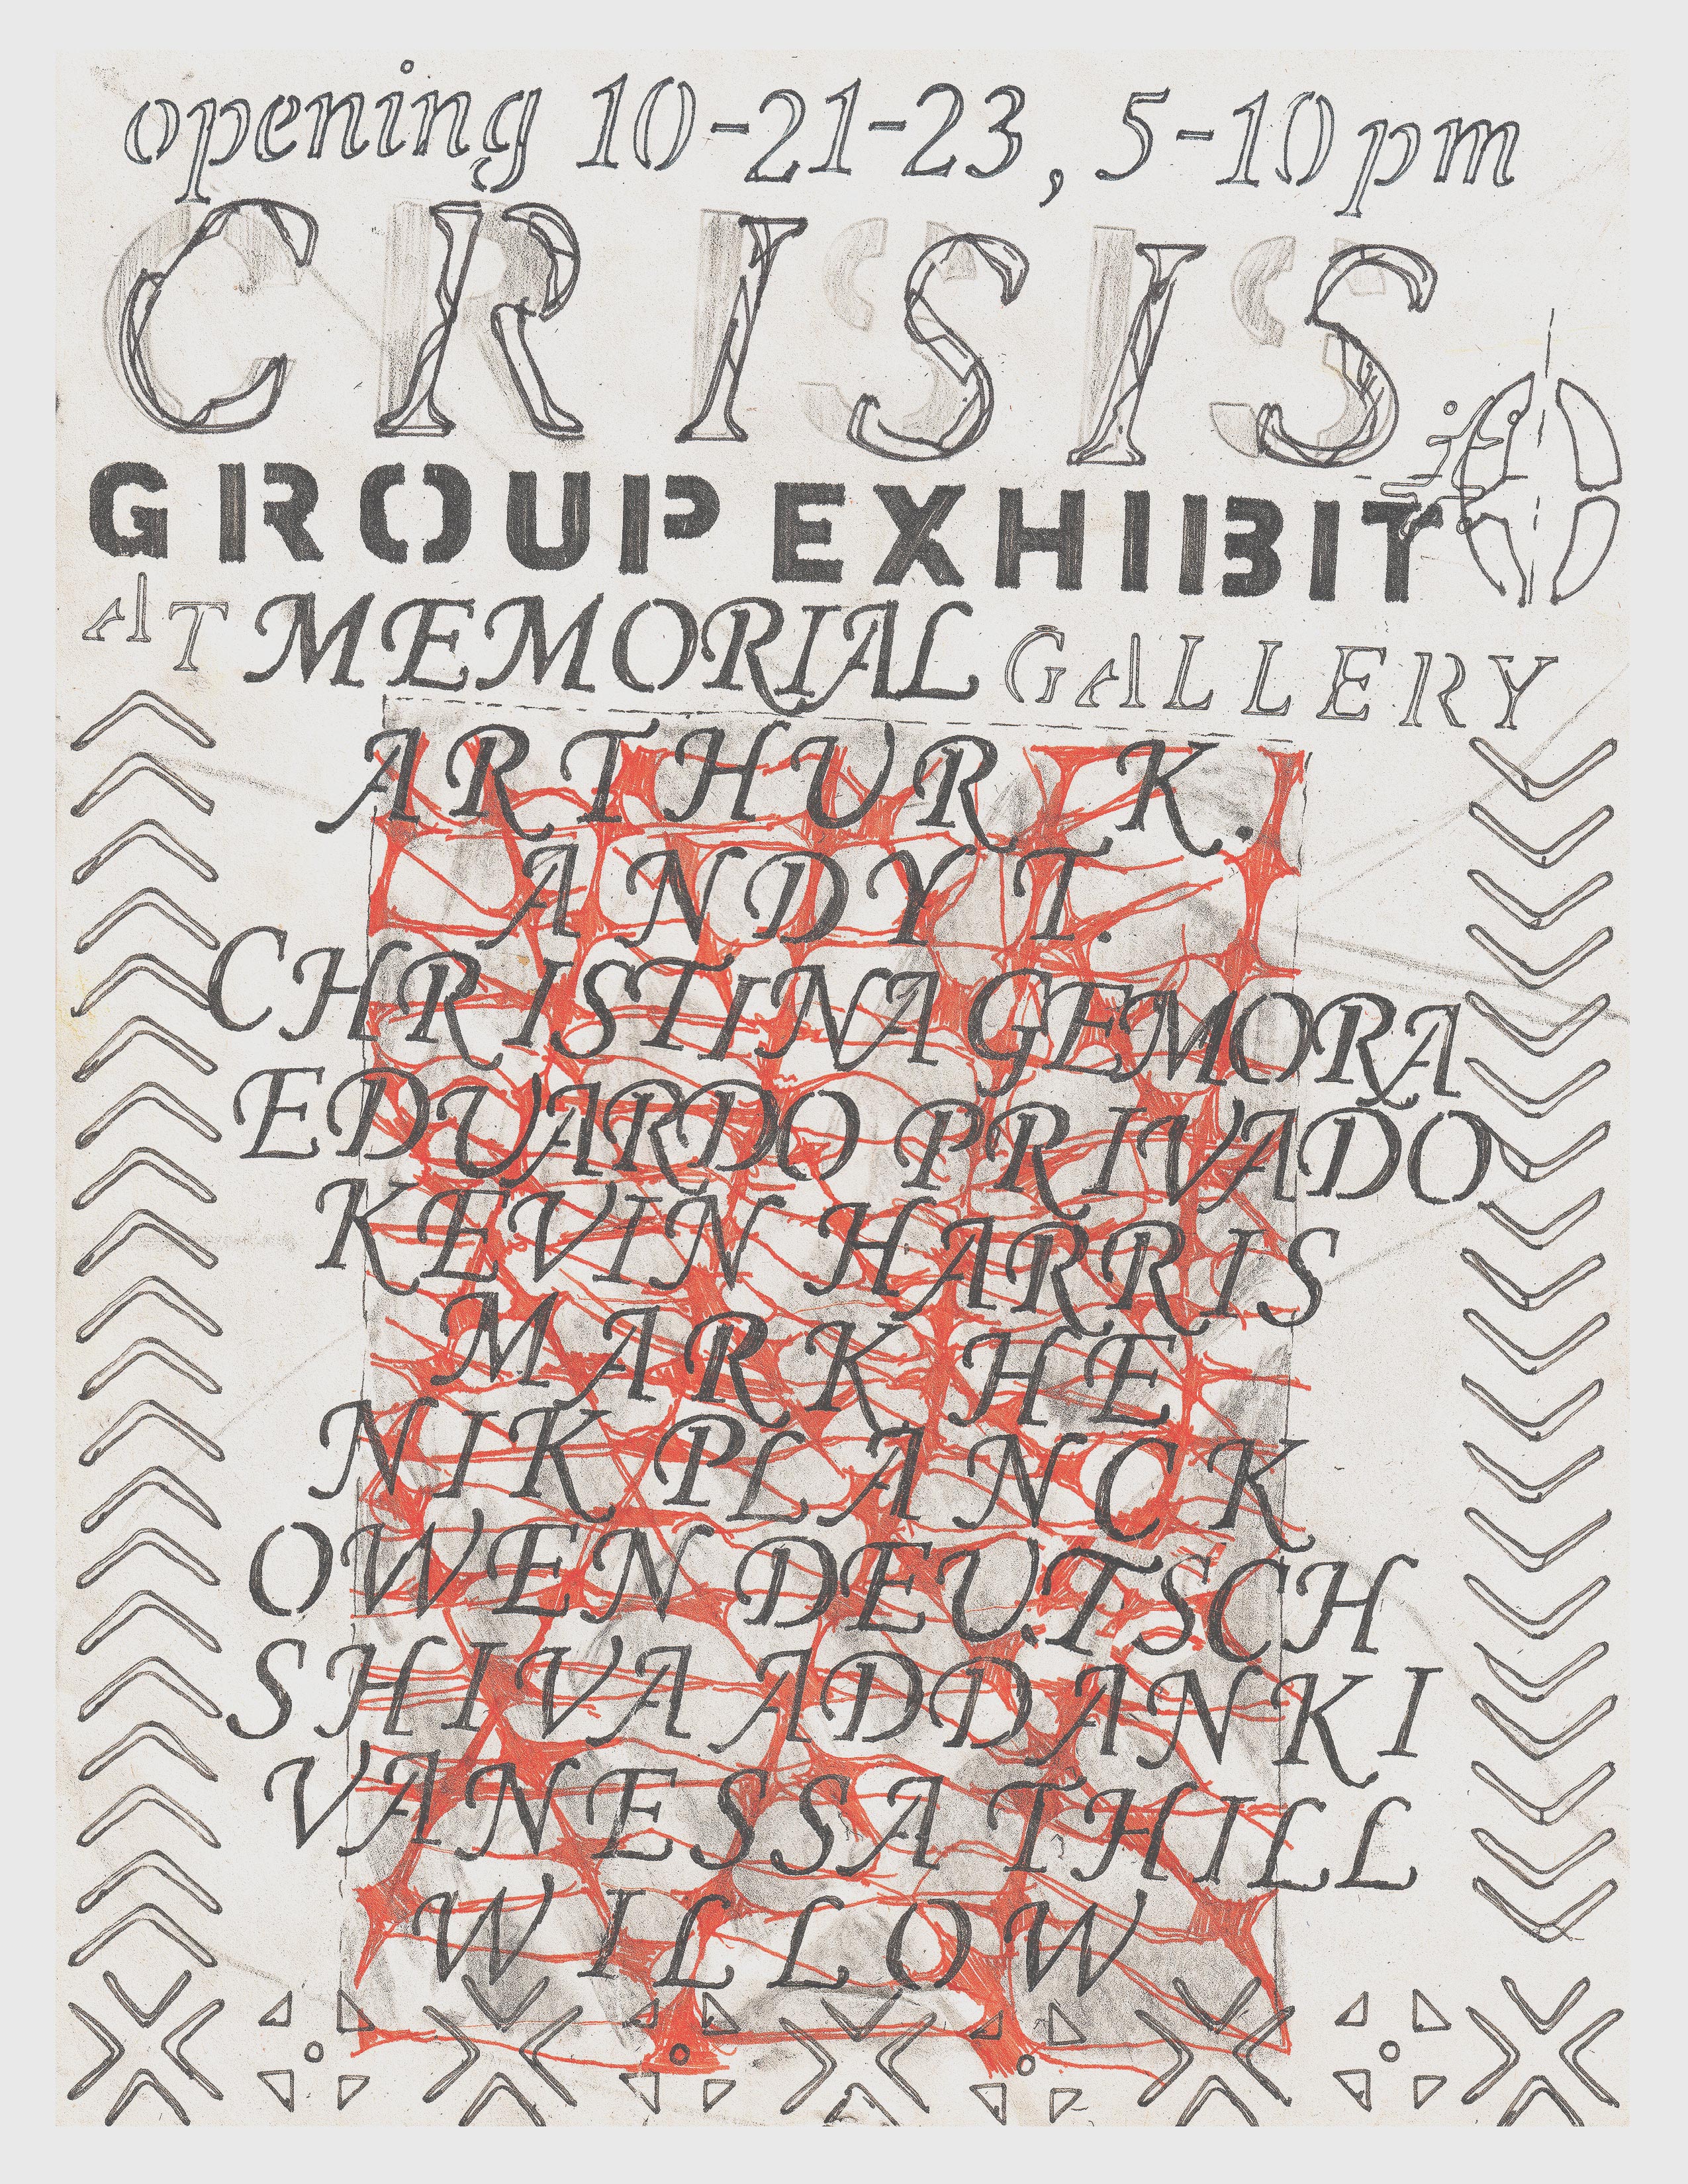 opening 10-21-23, 5-10pm
CRISIS
GROUP EXHIBIT
AT MEMORIAL GALLERY
ARTHUR K.
ANDY T.
CHRISTINA GEMORA
EDUARDO PRIVADO
KEVIN HARRIS
MARK HE
NIK PLANCK
OWEN DEUTSCH
SHIVA ADDANKI
VANESSA THILL
WILLOW